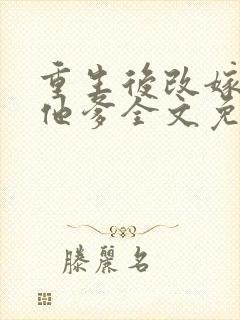 重生後改嫁
他爹全文免
滕麗名